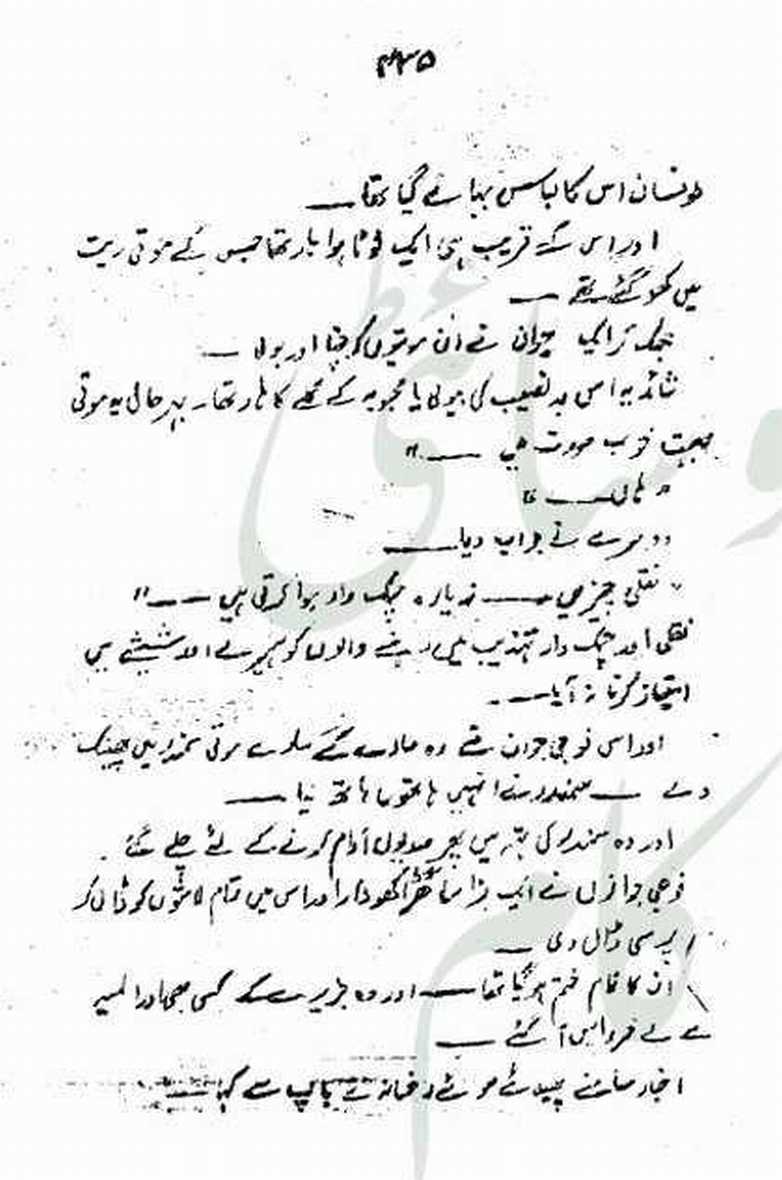 ۴۳۵
طوفان اس کا لباس بہا لے گیا تھا ــــ
اور اس کے قریب ہی ایک ٹوٹا ہوا ہار تھا جس کے موتی ریت
میں کھو گئے تھے ــــ
جھک کر ایک جوان نے ان موتیوں کو چنا اور بولا ــــ
شائد یہ اس بد نصیب کی بیوی یا محبوبہ کے گلے کا ہار تھا۔ بہر حال یہ موتی
بہت خوب صورت ہیں ــــ"
"ہاں ــــ"
دوسرے نے جواب دیا ــــ
"نقلی چیزیں ــــ زیادہ چمک دار ہوا کرتی ہیں ــــ"
نقلی اور چمک دار تہذیب میں رہنے والوں کو ہیرے اور شیشے میں
امتیاز کرنا نہ آیا ــــ
اور اس فوجی جوان نے وہ سارے کے سارے موتی سمندر میں پھینک
دئے ــــ سمندر نے انہیں ہاتھوں ہاتھ لیا ــــ
اور وہ سمندر کی تہہ میں پھر صدیوں آرام کرنے کے لئے چلے گئے۔
فوجی جوانوں نے ایک بڑا سا گڑھا کھودا اور اس میں تمام لاشوں کو ڈال کر
اوپر مٹی ڈال دی ــــ
ان کا کام ختم ہو گیا تھا ــــ اور وہ جزیرے کے کسی بھی اور المیہ
سے بے خبر واپس آ گئے ــــ
اخبار سامنے پھیلائے ہوئے رخسانہ نے باپ سے کہا ــــ